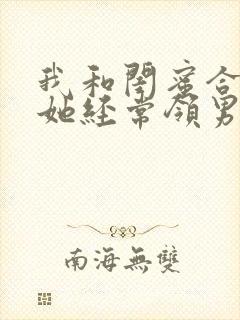 我和閨蜜合
她經常領男
南海無雙